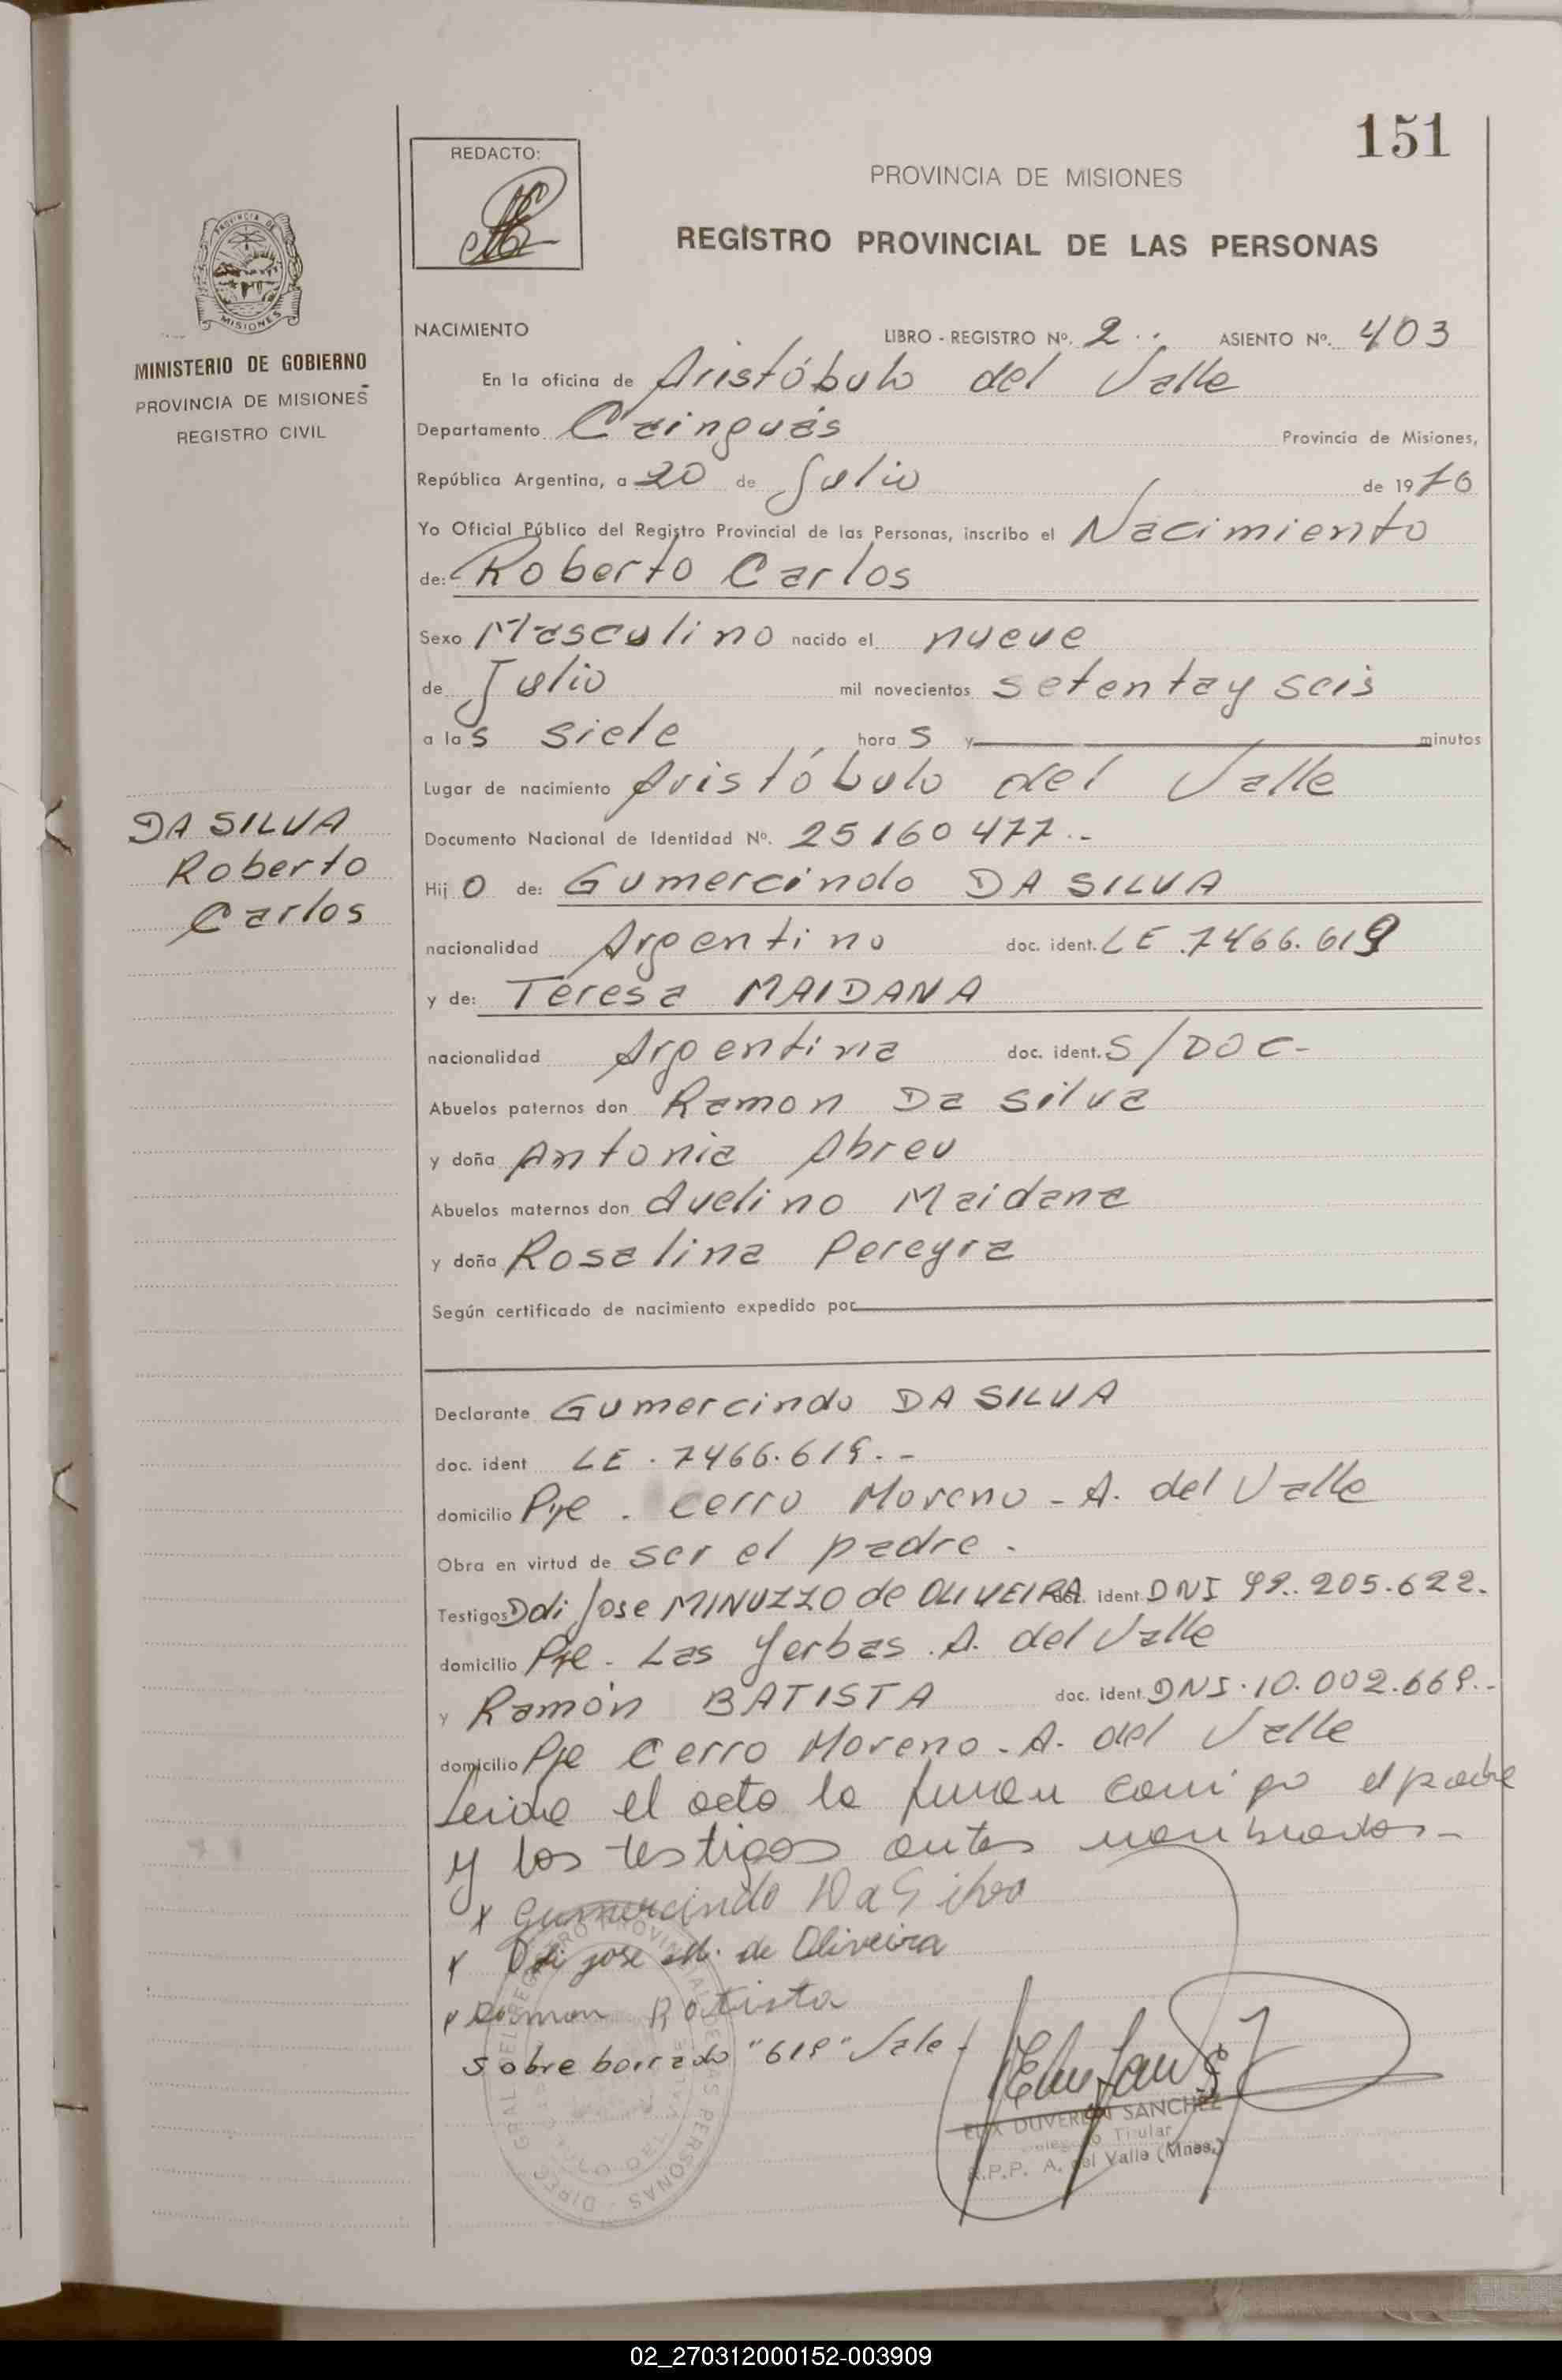 151
REDACTO:
PROVINCIA DE MISIONES
REGISTRO PROVINCIAL DE LAS PERSONAS
PROVINCIA DE
MISIONES
MINISTERIO DE GOBIERNO
PROVINCIA DE MISIONES
REGISTRO CIVIL
DA SILVA
Roberto
Carlos
NACIMIENTO LIBRO - REGISTRO Nº. 2.. ASIENTO Nº. 403
En la oficina de Aristóbulo del Valle
Departamento Cainguás Provincia de Misiones,
República Argentina, a 20 de Julio de 1976
Yo Oficial Público del Registro Provincial de las Personas, inscribo el Nacimiento
de: Roberto Carlos
Sexo Masculino nacido el nueve
de Julio mil novecientos setenta y seis
a las siete horas y minutos
Lugar de nacimiento Aristóbulo del Valle
Documento Nacional de Identidad Nº. 25160477.-
Hijo de: Gumercindo DA SILVA
nacionalidad Argentino doc. ident. LE 7466.619
y de: Teresa MAIDANA
nacionalidad Argentina doc. ident. S/DOC-
Abuelos paternos don Ramon Da Silva
y doña Antonia Abreu
Abuelos maternos don Avelino Maidana
y doña Rosalina Pereyra
Según certificado de nacimiento expedido por
Declarante Gumercindo DA SILVA
doc. ident LE. 7466.619.-
domicilio Pje. Cerro Moreno - A. del Valle
Obra en virtud de ser el padre.
Testigos Ddi Jose MINUZZO de OLIVEIRA doc. ident DNI 92.205.622.
domicilio Pje. Las Yerbas. A. del Valle
y Ramón BATISTA doc. ident. DNI. 10.002.669.-
domicilio Pje Cerro Moreno. A. del Valle
Leida el acta la firman conmigo el padre
y los testigos antes nombrados.-
x Gumercindo Da Silva
x Ddi jose M. de Oliveira
x Ramon Batista
sobre borrado "619" Vale.
ELIX DUVERLY SANCHEZ
Delegado Titular
R.P.P. A. del Valle (Mnes.)
02_270312000152-003909